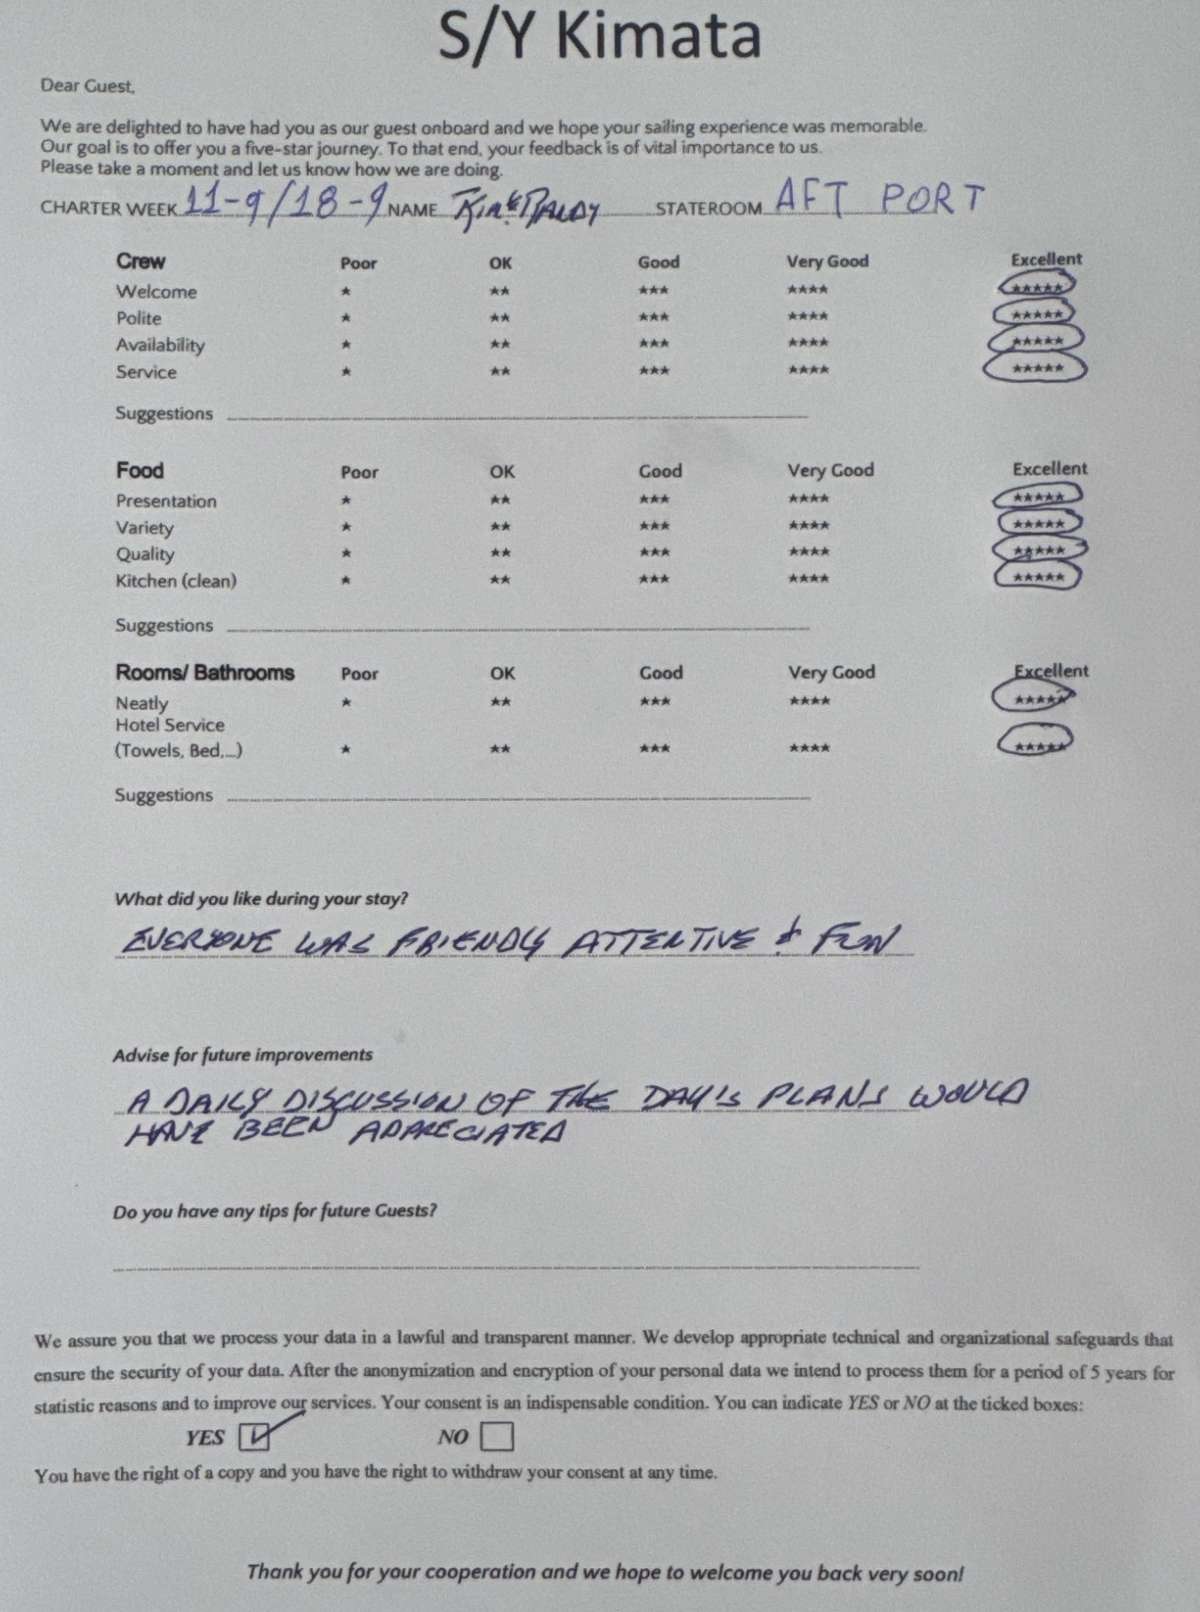 S/Y Kimata
Dear Guest,
We are delighted to have had you as our guest onboard and we hope your sailing experience was memorable.
Our goal is to offer you a five-star journey. To that end, your feedback is of vital importance to us.
Please take a moment and let us know how we are doing.
CHARTER WEEK 11-9/18-9 NAME STATEROOM AFT PORT
Crew Poor OK Good Very Good Excellent
Welcome ★ ★★ ★★★ ★★★★ ★★★★★
Polite ★ ★★ ★★★ ★★★★ ★★★★★
Availability ★ ★★ ★★★ ★★★★ ★★★★★
Service ★ ★★ ★★★ ★★★★ ★★★★★
Suggestions
Food Poor OK Good Very Good Excellent
Presentation ★ ★★ ★★★ ★★★★ ★★★★★
Variety ★ ★★ ★★★ ★★★★ ★★★★★
Quality ★ ★★ ★★★ ★★★★ ★★★★★
Kitchen (clean) ★ ★★ ★★★ ★★★★ ★★★★★
Suggestions
Rooms/ Bathrooms Poor OK Good Very Good Excellent
Neatly ★ ★★ ★★★ ★★★★ ★★★★★
Hotel Service
(Towels, Bed,...) ★ ★★ ★★★ ★★★★ ★★★★★
Suggestions
What did you like during your stay?
EVERYONE WAS FRIENDLY ATTENTIVE & FUN
Advise for future improvements
A DAILY DISCUSSION OF THE DAY'S PLANS WOULD
HAVE BEEN APPRECIATED
Do you have any tips for future Guests?
We assure you that we process your data in a lawful and transparent manner. We develop appropriate technical and organizational safeguards that
ensure the security of your data. After the anonymization and encryption of your personal data we intend to process them for a period of 5 years for
statistic reasons and to improve our services. Your consent is an indispensable condition. You can indicate YES or NO at the ticked boxes:
YES NO
You have the right of a copy and you have the right to withdraw your consent at any time.
Thank you for your cooperation and we hope to welcome you back very soon!